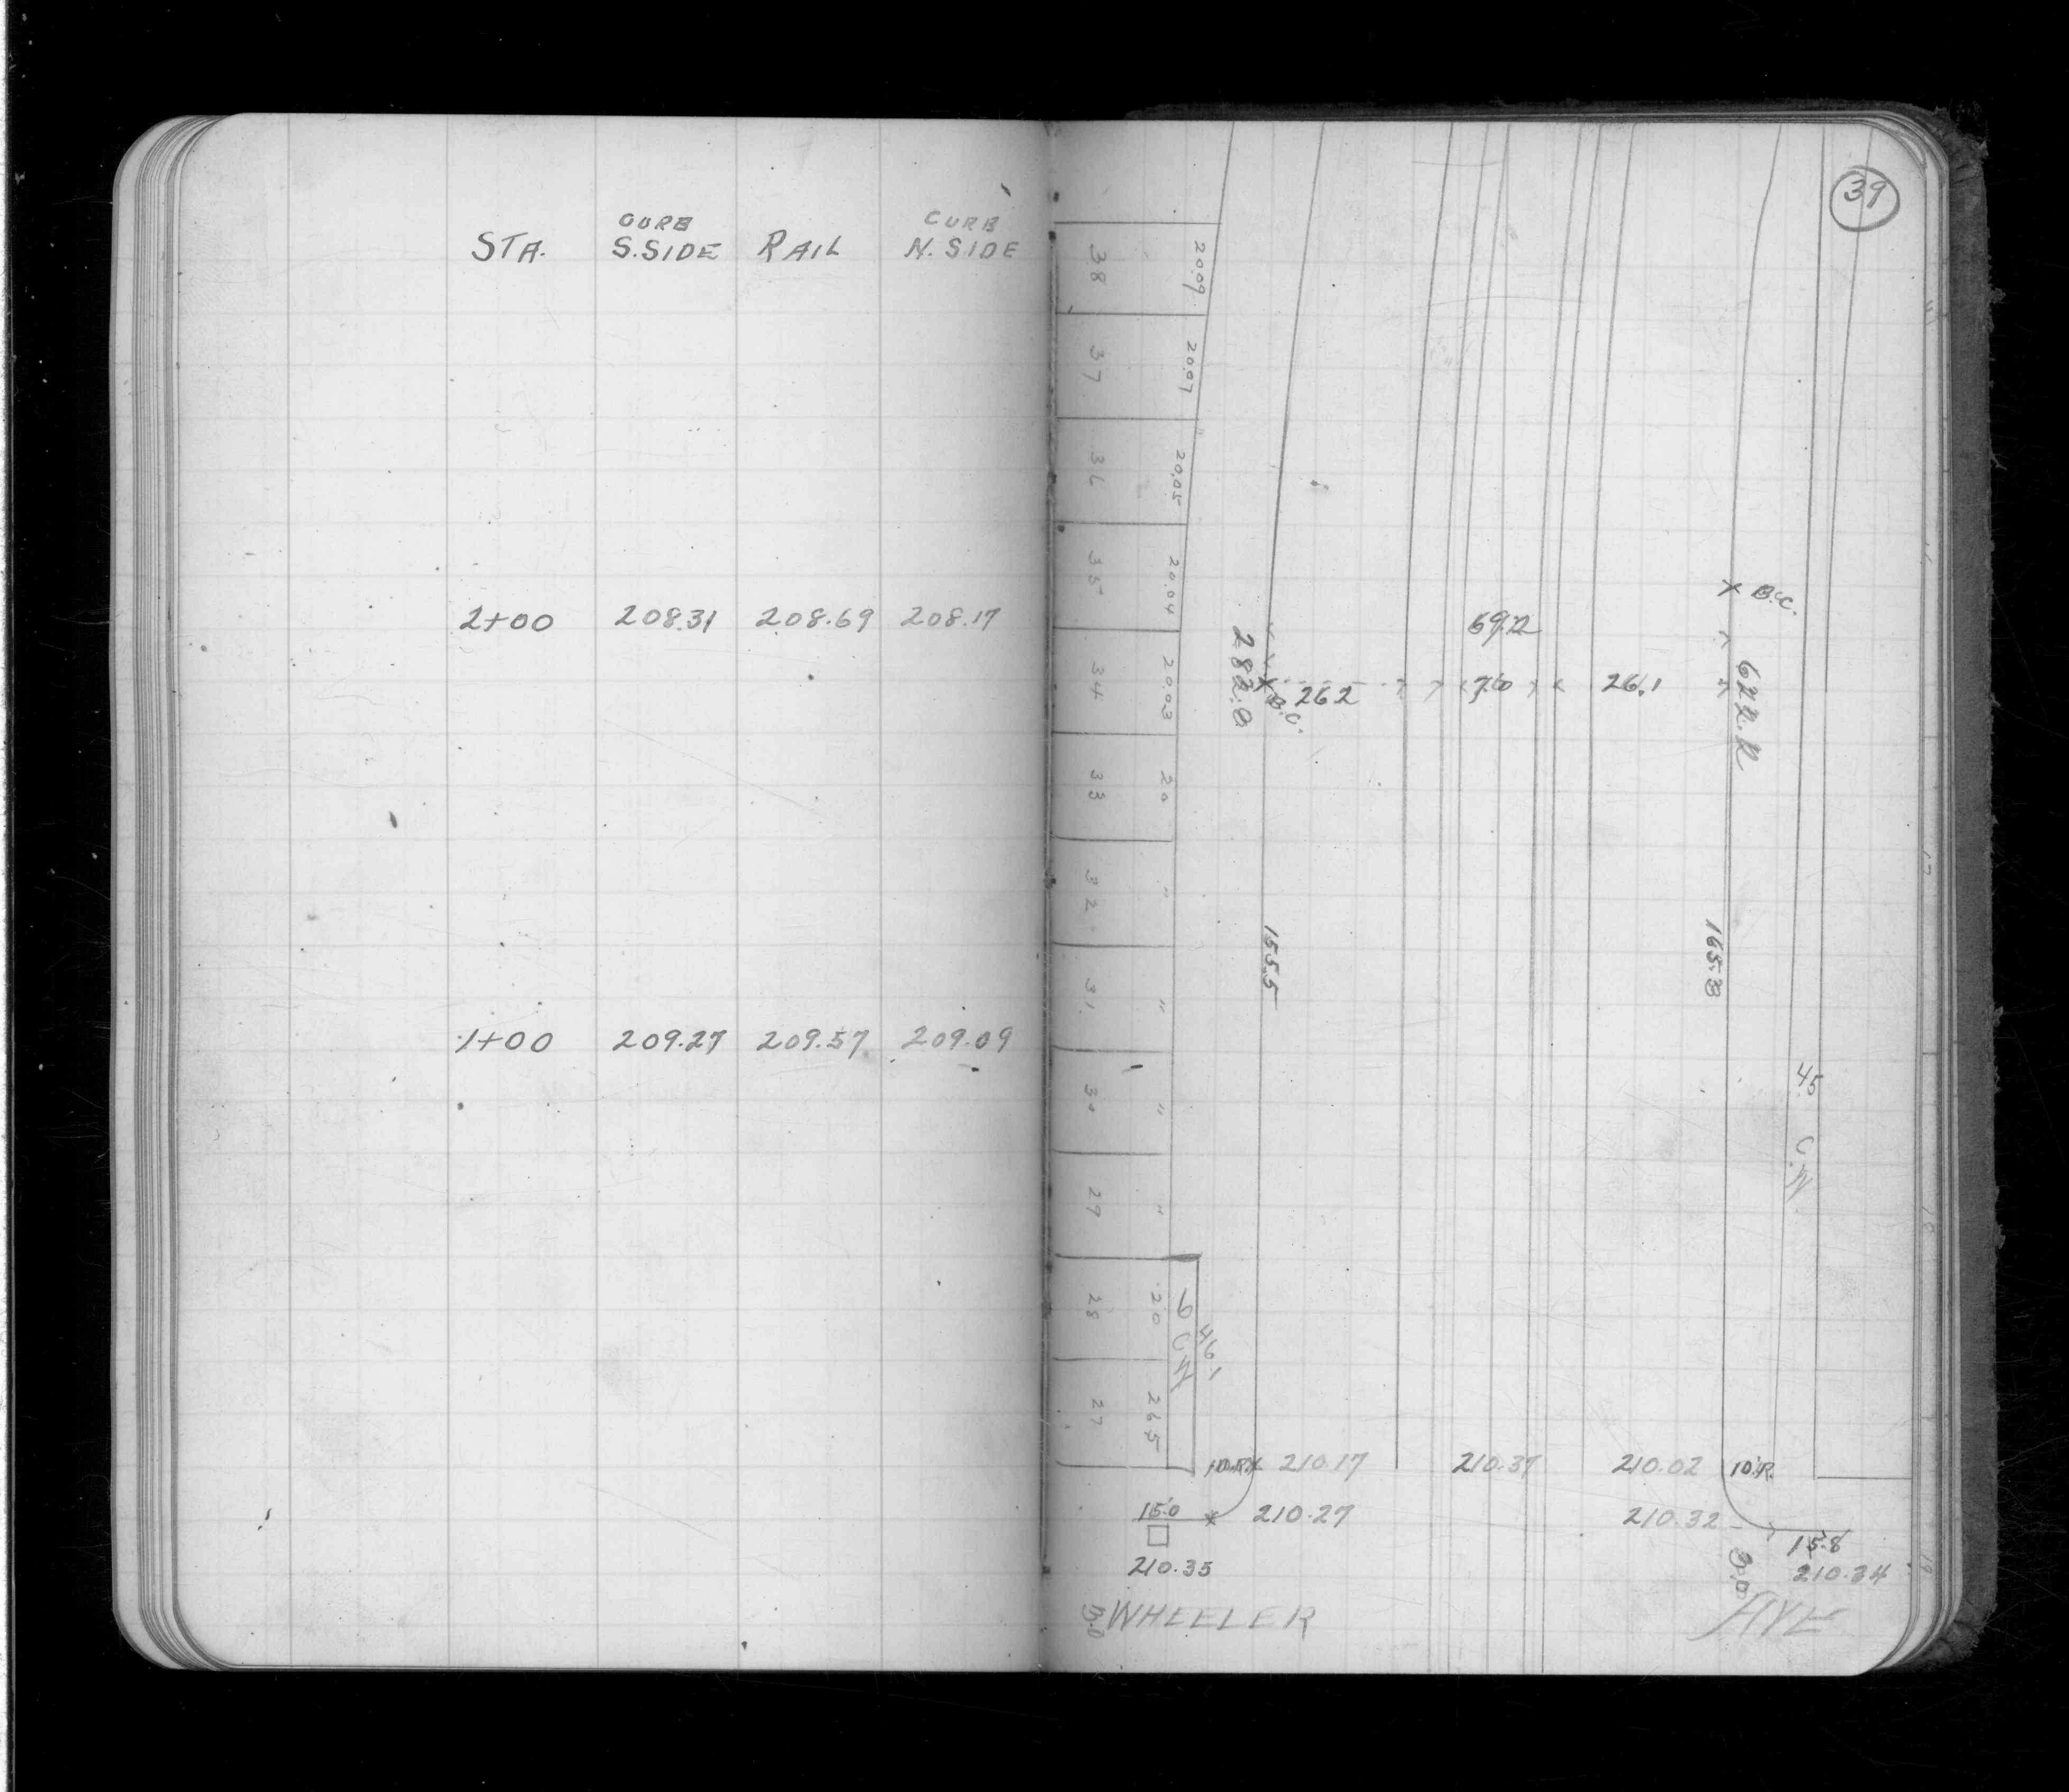 CURB CURB
STA. S.SIDE RAIL N.SIDE
2+00 208.31 208.69 208.17
1+00 209.27 209.57 209.09
39
38 20.09
37 20.07
36 20.05
35 20.04
34 20.03
33 20
32 "
31 "
30 "
29 "
28 20
27 26.5
6 C.W.
46.1
282.0
X B.C.
69.2
X B.C. 26.2 7.6 26.1
622.2
155.5
165.3
45 C.W.
10'R. 210.17 210.37 210.02 10'R.
15.0 210.27 210.32
15.8
210.35
210.34
3.0
3.0
WHEELER AVE